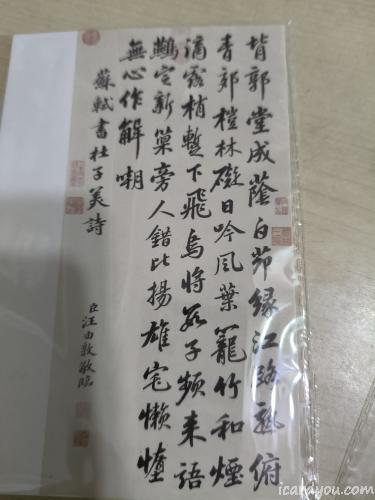 背郭堂成蔭白茆緣江路熟俯
青郊榿林礙日吟風葉籠竹和煙
滴露梢暫下飛烏將數子頻來語
鷰定新巢旁人錯比揚雄宅懶惰
無心作解嘲
蘇軾書杜子美詩
臣汪由敦敬臨
icarayou.com